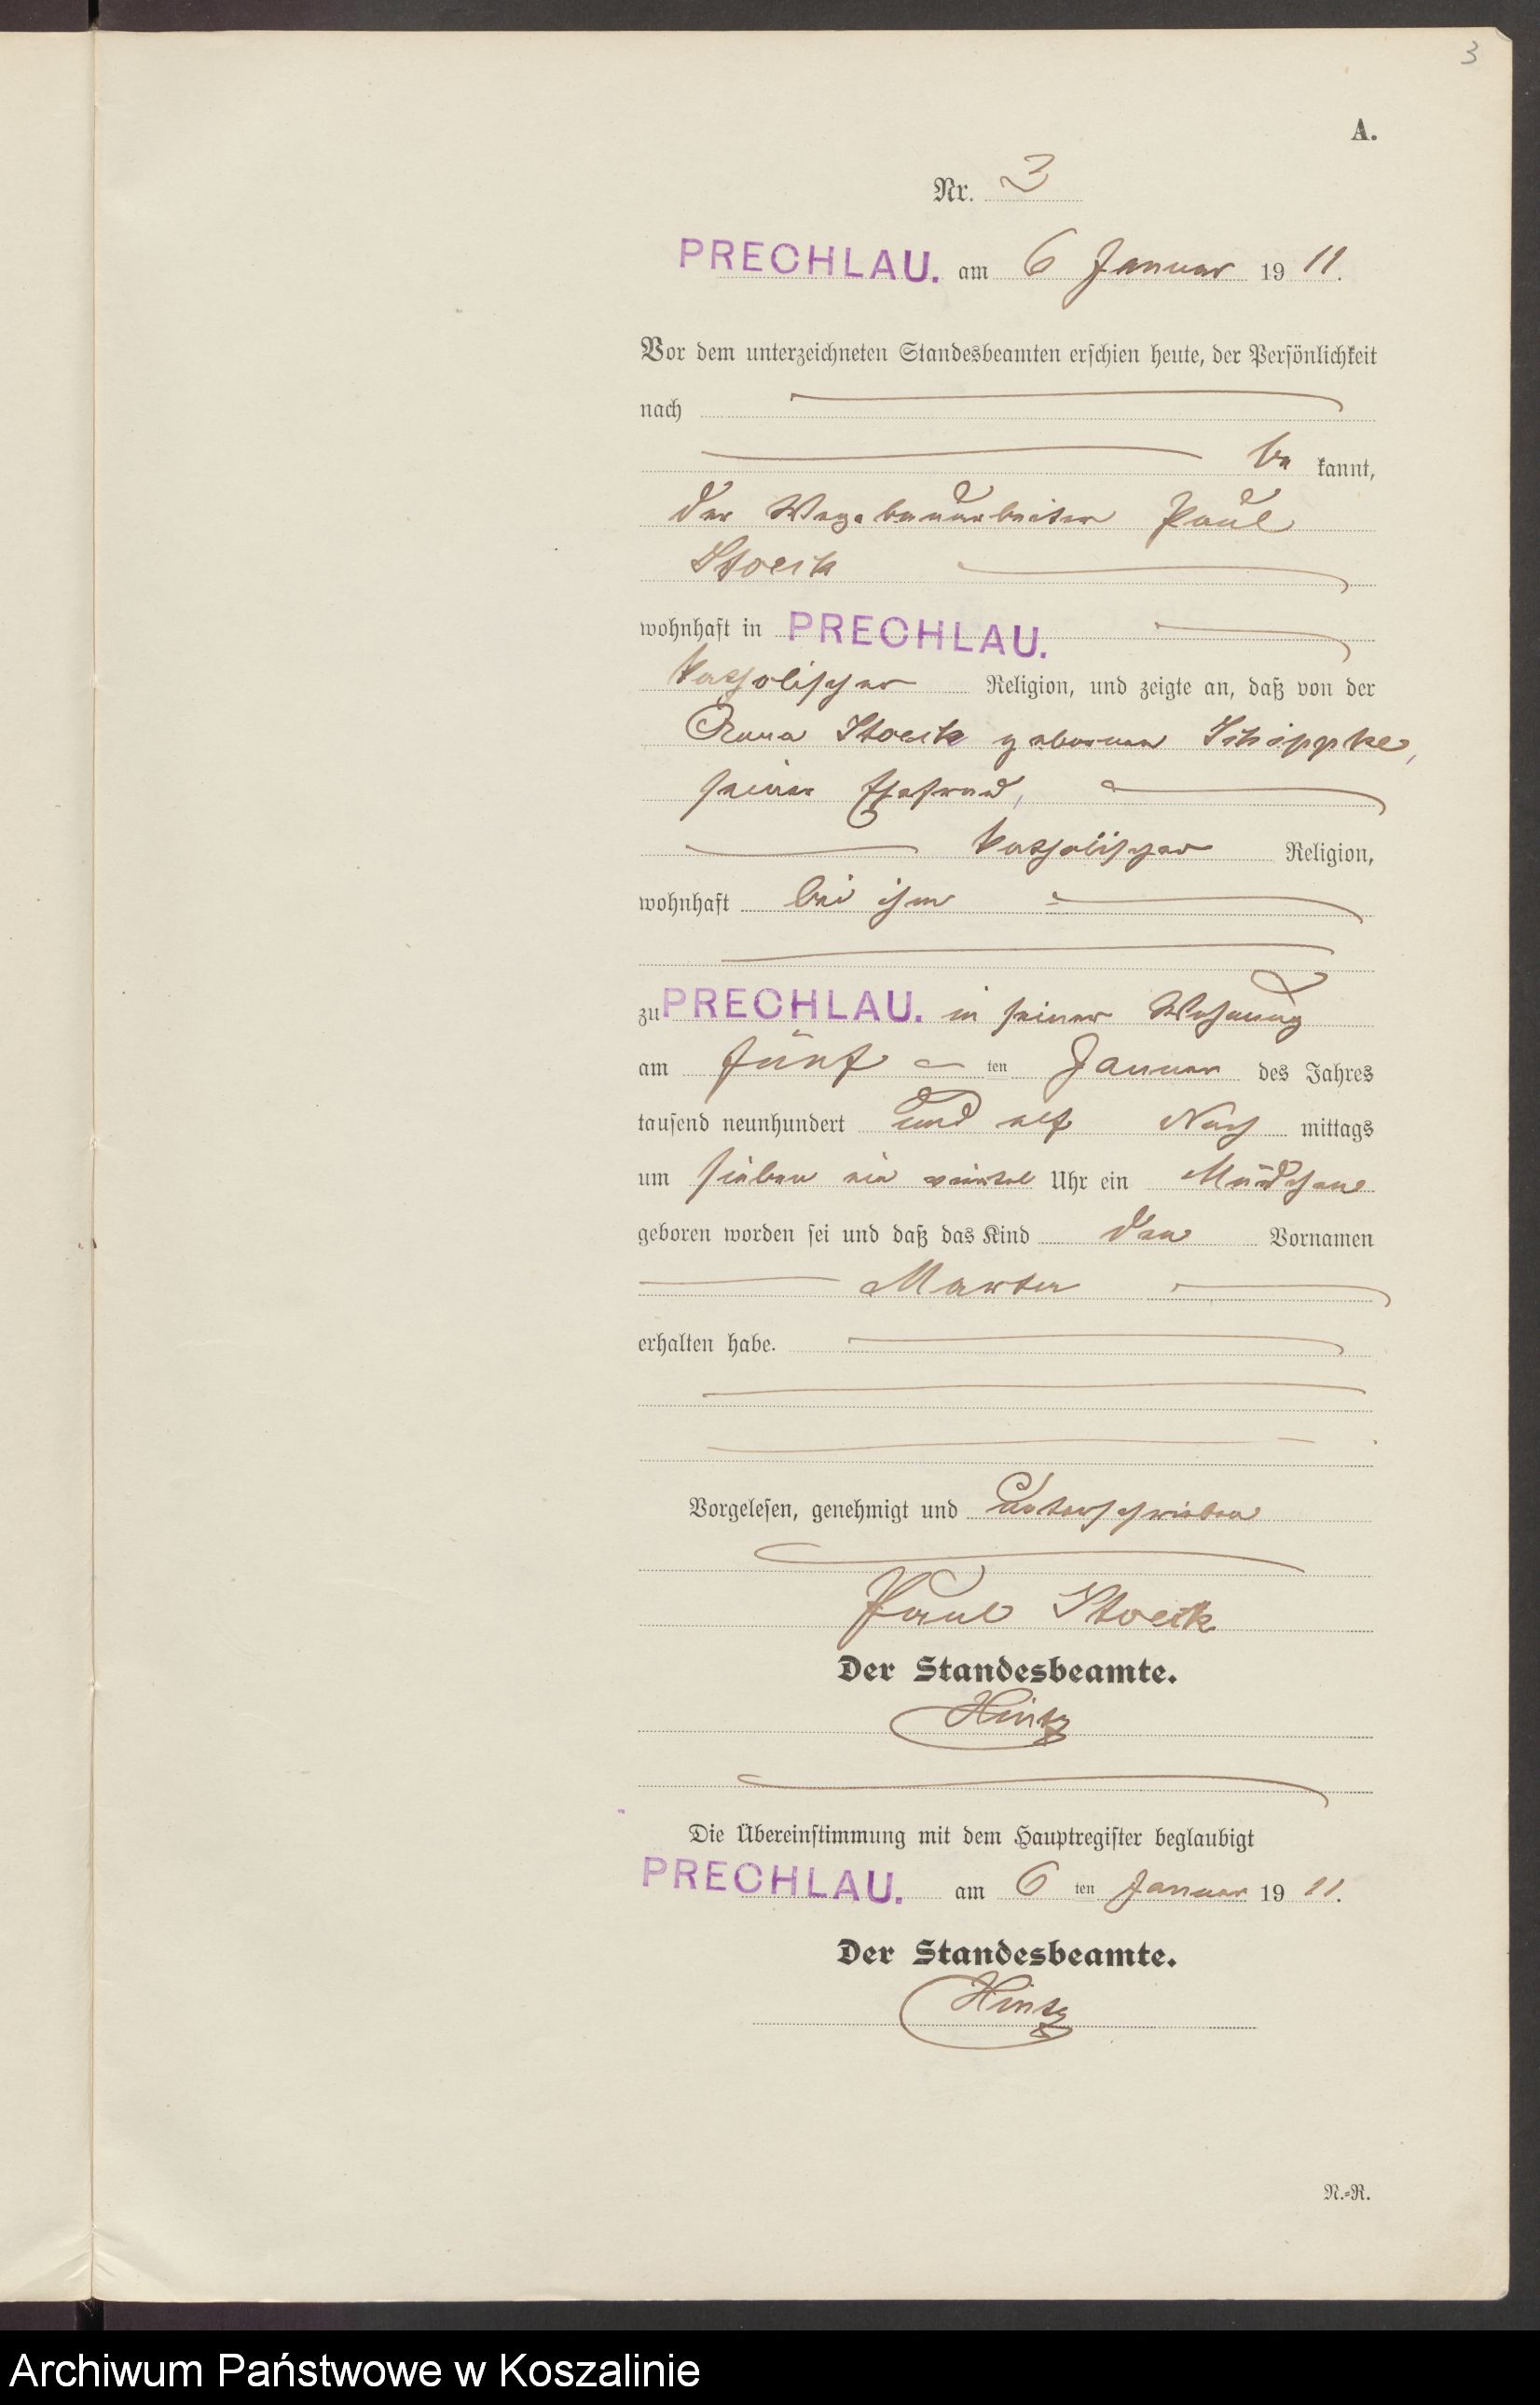 3
A.
Nr. 3
PRECHLAU. am 6 Januar 19 11.
Vor dem unterzeichneten Standesbeamten erschien heute, der Persönlichkeit
nach
be kannt,
der Wegebauarbeiter Paul
Stoeck
wohnhaft in PRECHLAU.
katholischer Religion, und zeigte an, daß von der
Anna Stoeck geborenen Schippke,
seiner Ehefrau,
katholischer Religion,
wohnhaft bei ihm
zu PRECHLAU. in seiner Wohnung
am fünf ten Januar des Jahres
tausend neunhundert und elf Nach mittags
um sieben ein viertel Uhr ein Mädchen
geboren worden sei und daß das Kind den Vornamen
Martha
erhalten habe.
Vorgelesen, genehmigt und unterschrieben
Paul Stoeck
Der Standesbeamte.
Hintz
Die Übereinstimmung mit dem Hauptregister beglaubigt
PRECHLAU. am 6 ten Januar 19 11.
Der Standesbeamte.
Hintz
N.=R.
Archiwum Państwowe w Koszalinie